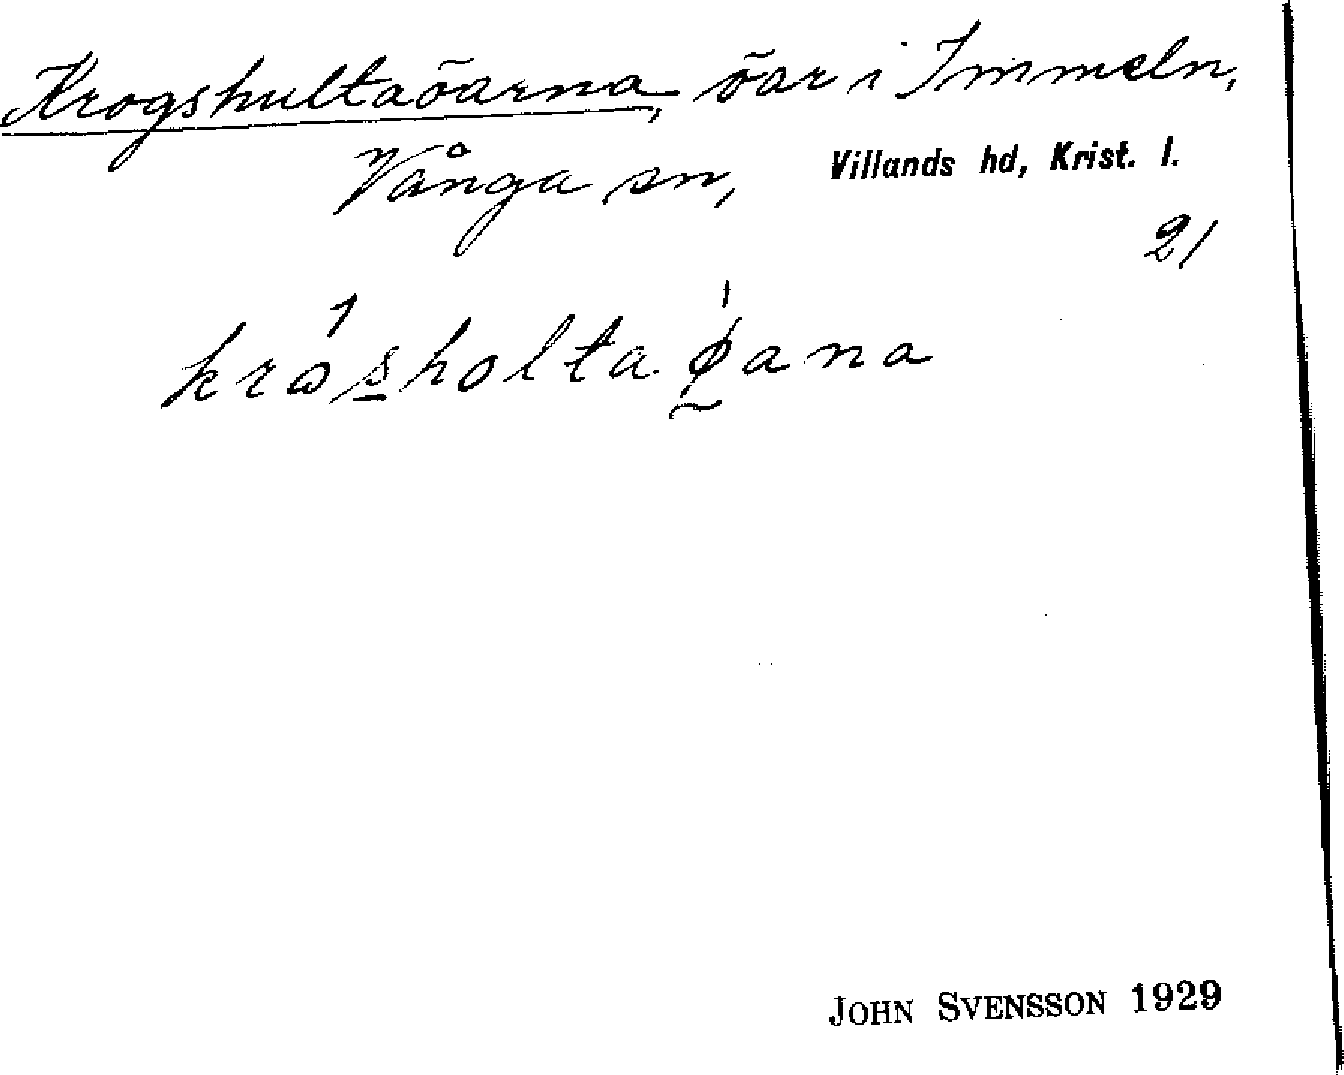 Krogshultaöarna, öar i Immeln,
Vånga sn, Villands hd, Krist. l.
21
JOHN SVENSSON 1929